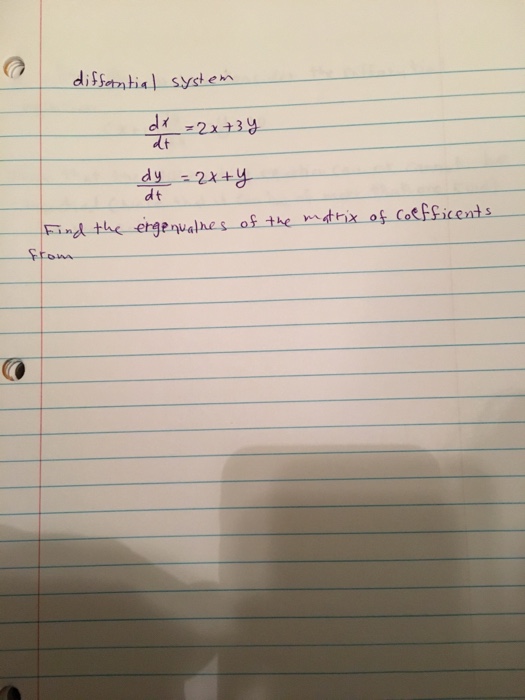 differntial system
dx/dt = 2x+3y
dy/dt = 2x+y
Find the eigenvalues of the matrix of coefficents
from